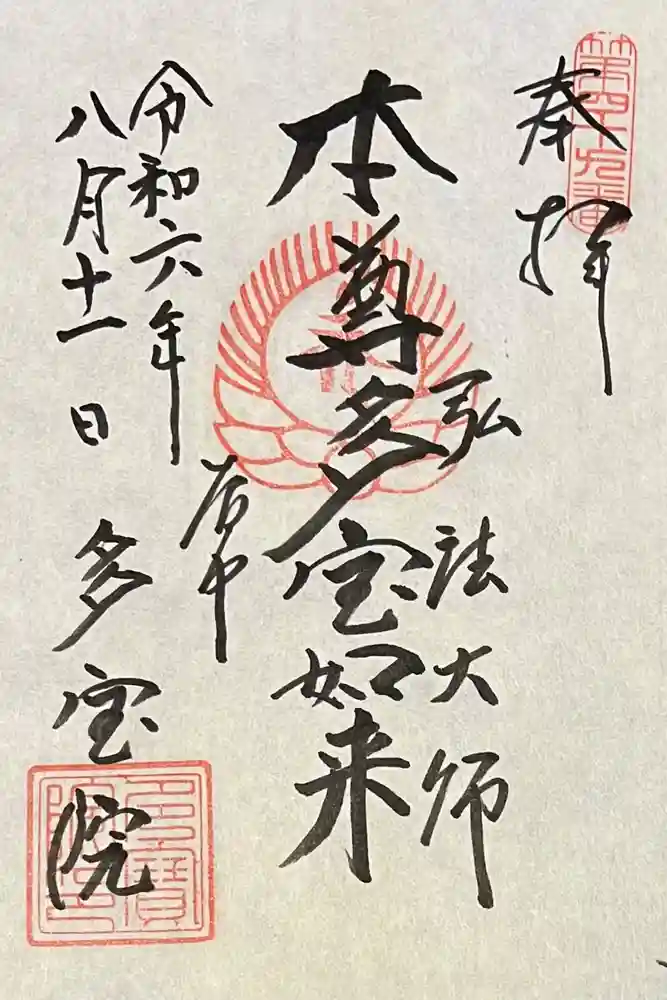 第四十九番
奉拝
弘法大師
本尊多宝如来
谷中
令和六年
八月十一日
多宝院